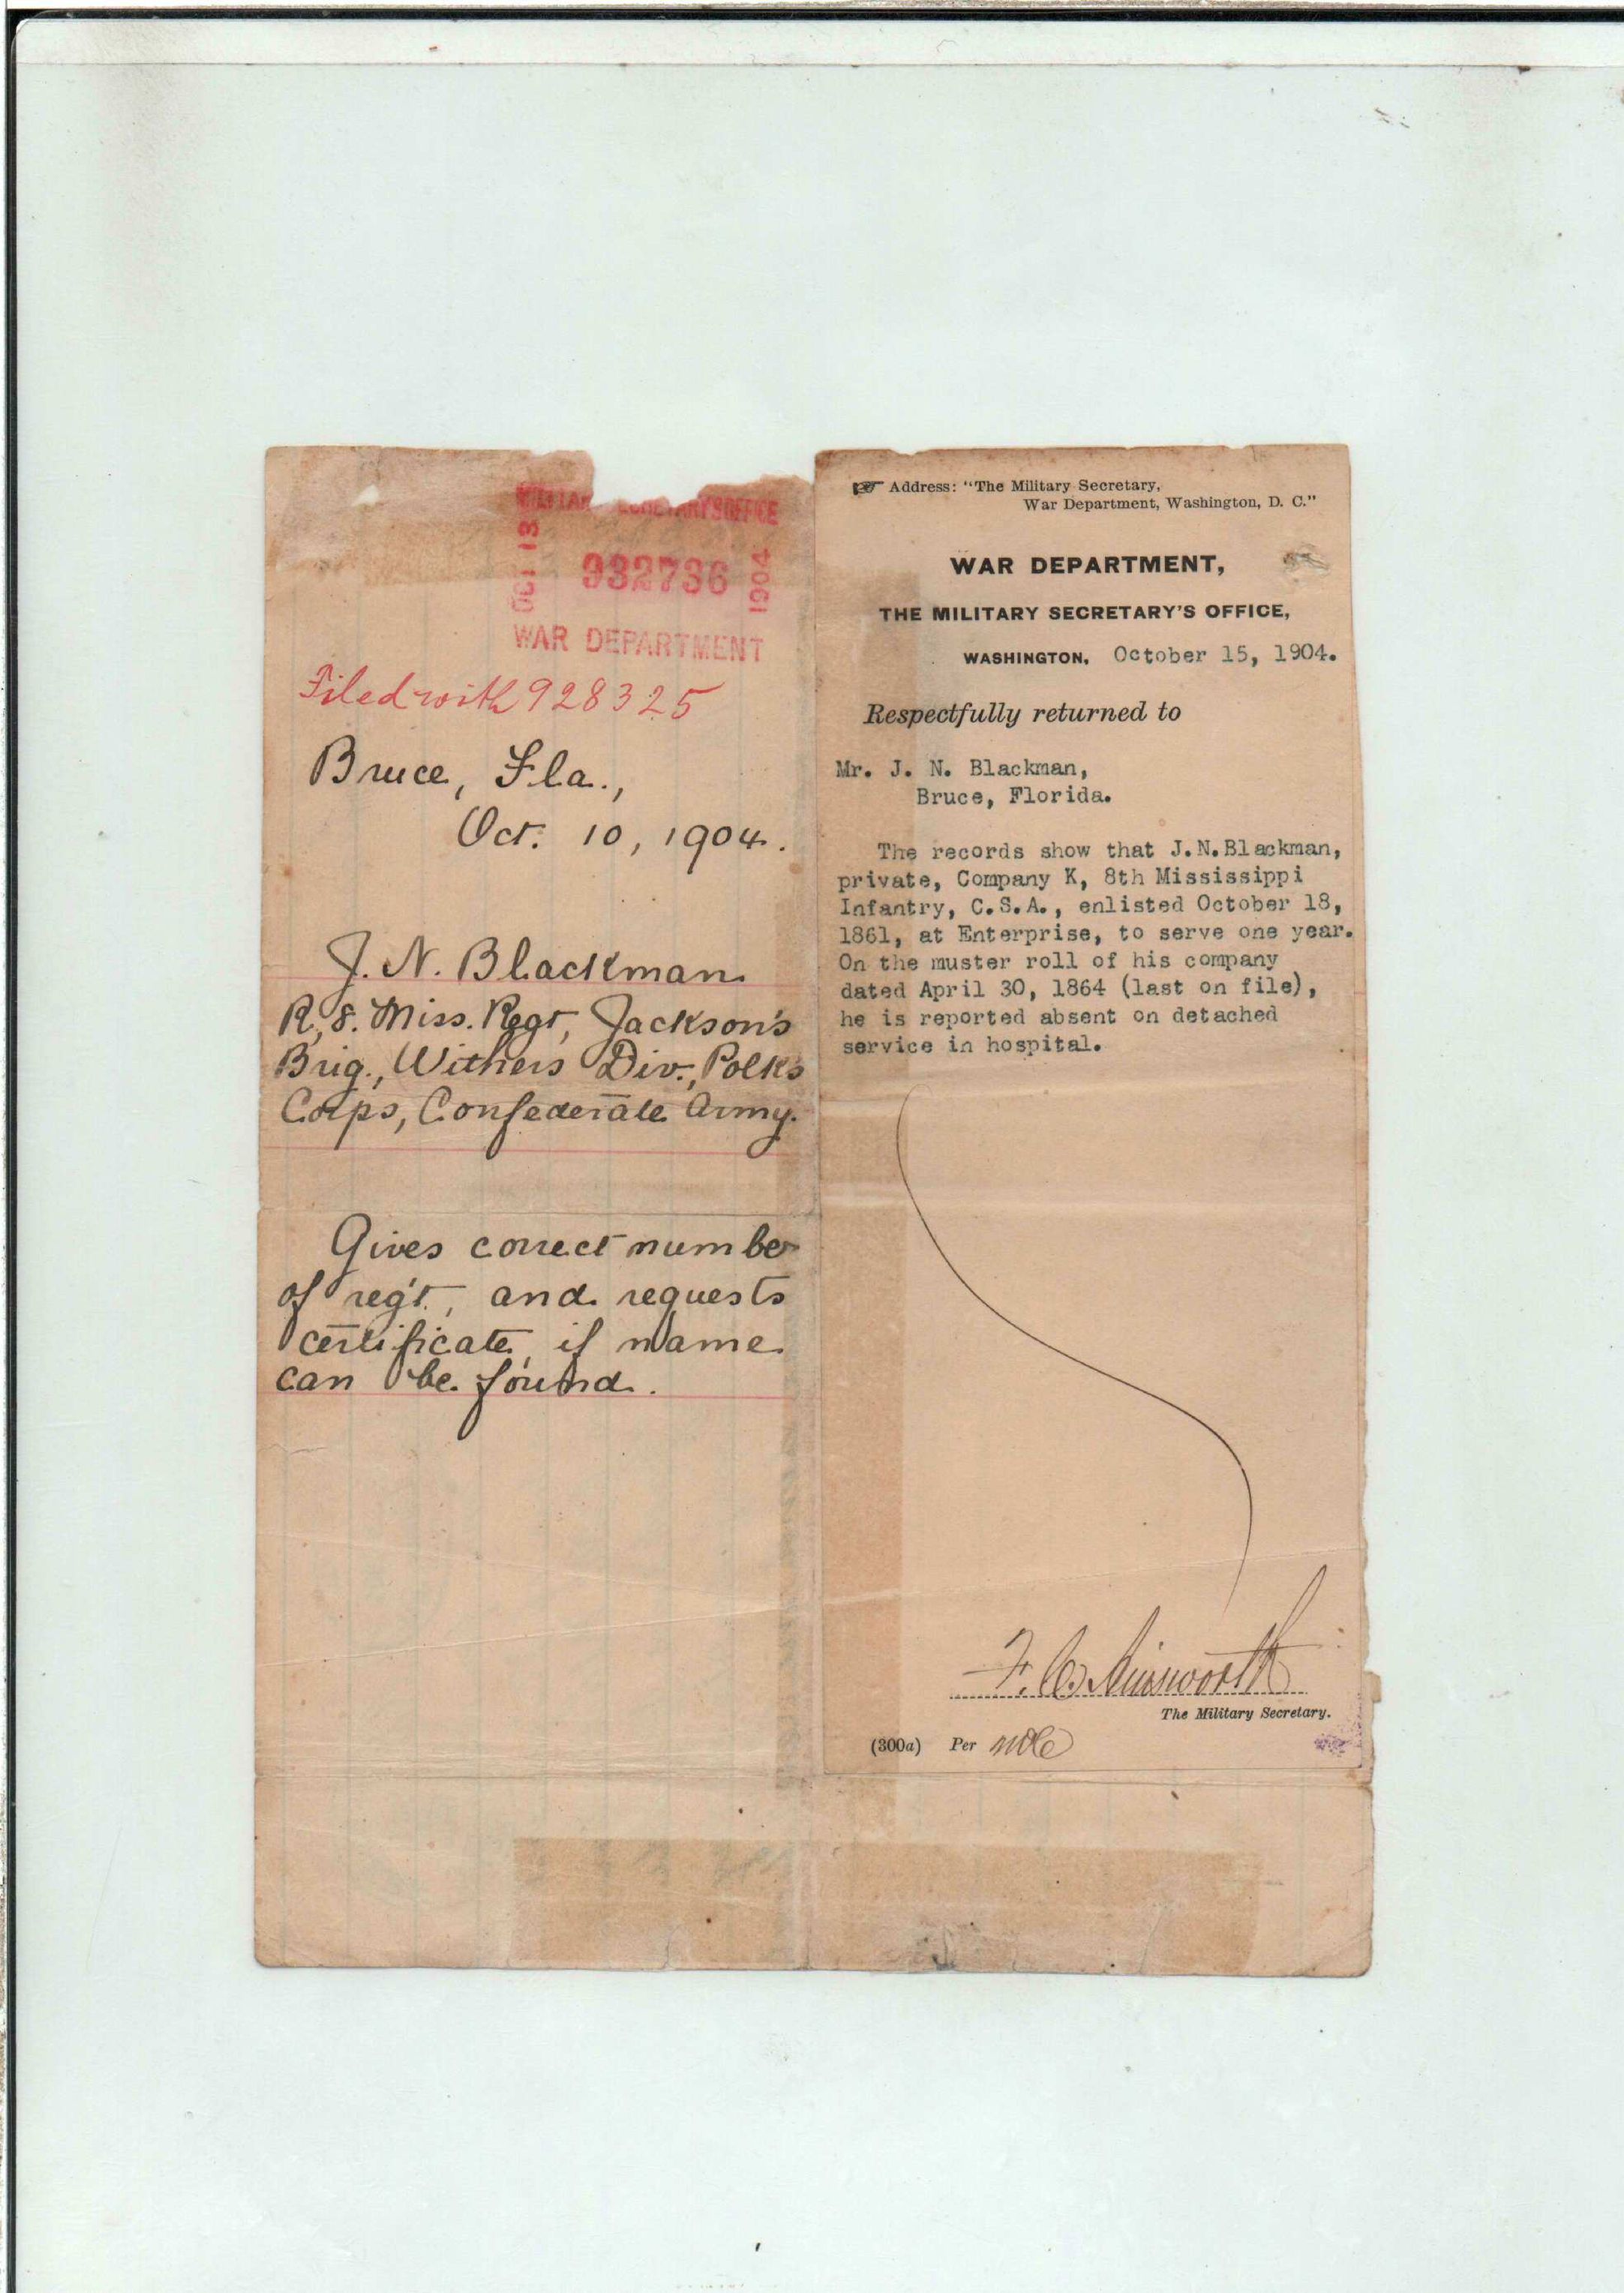 MILITARY SECRETARY'S OFFICE
OCT 13 1904
932736
WAR DEPARTMENT
Filed with 928325
Bruce, Fla.,
Oct. 10, 1904.
J. N. Blackman
R, 8. Miss. Regt, Jackson's
Brig., Withers Div., Polk's
Corps, Confederate Army.
Gives correct number
of reg't., and requests
certificate, if name
can be found.
☞ Address: "The Military Secretary,
War Department, Washington, D. C."
WAR DEPARTMENT,
THE MILITARY SECRETARY'S OFFICE,
WASHINGTON, October 15, 1904.
Respectfully returned to
Mr. J. N. Blackman,
Bruce, Florida.
The records show that J.N.Blackman,
private, Company K, 8th Mississippi
Infantry, C.S.A., enlisted October 18,
1861, at Enterprise, to serve one year.
On the muster roll of his company
dated April 30, 1864 (last on file),
he is reported absent on detached
service in hospital.
F. C. Ainsworth
The Military Secretary.
(300a) Per